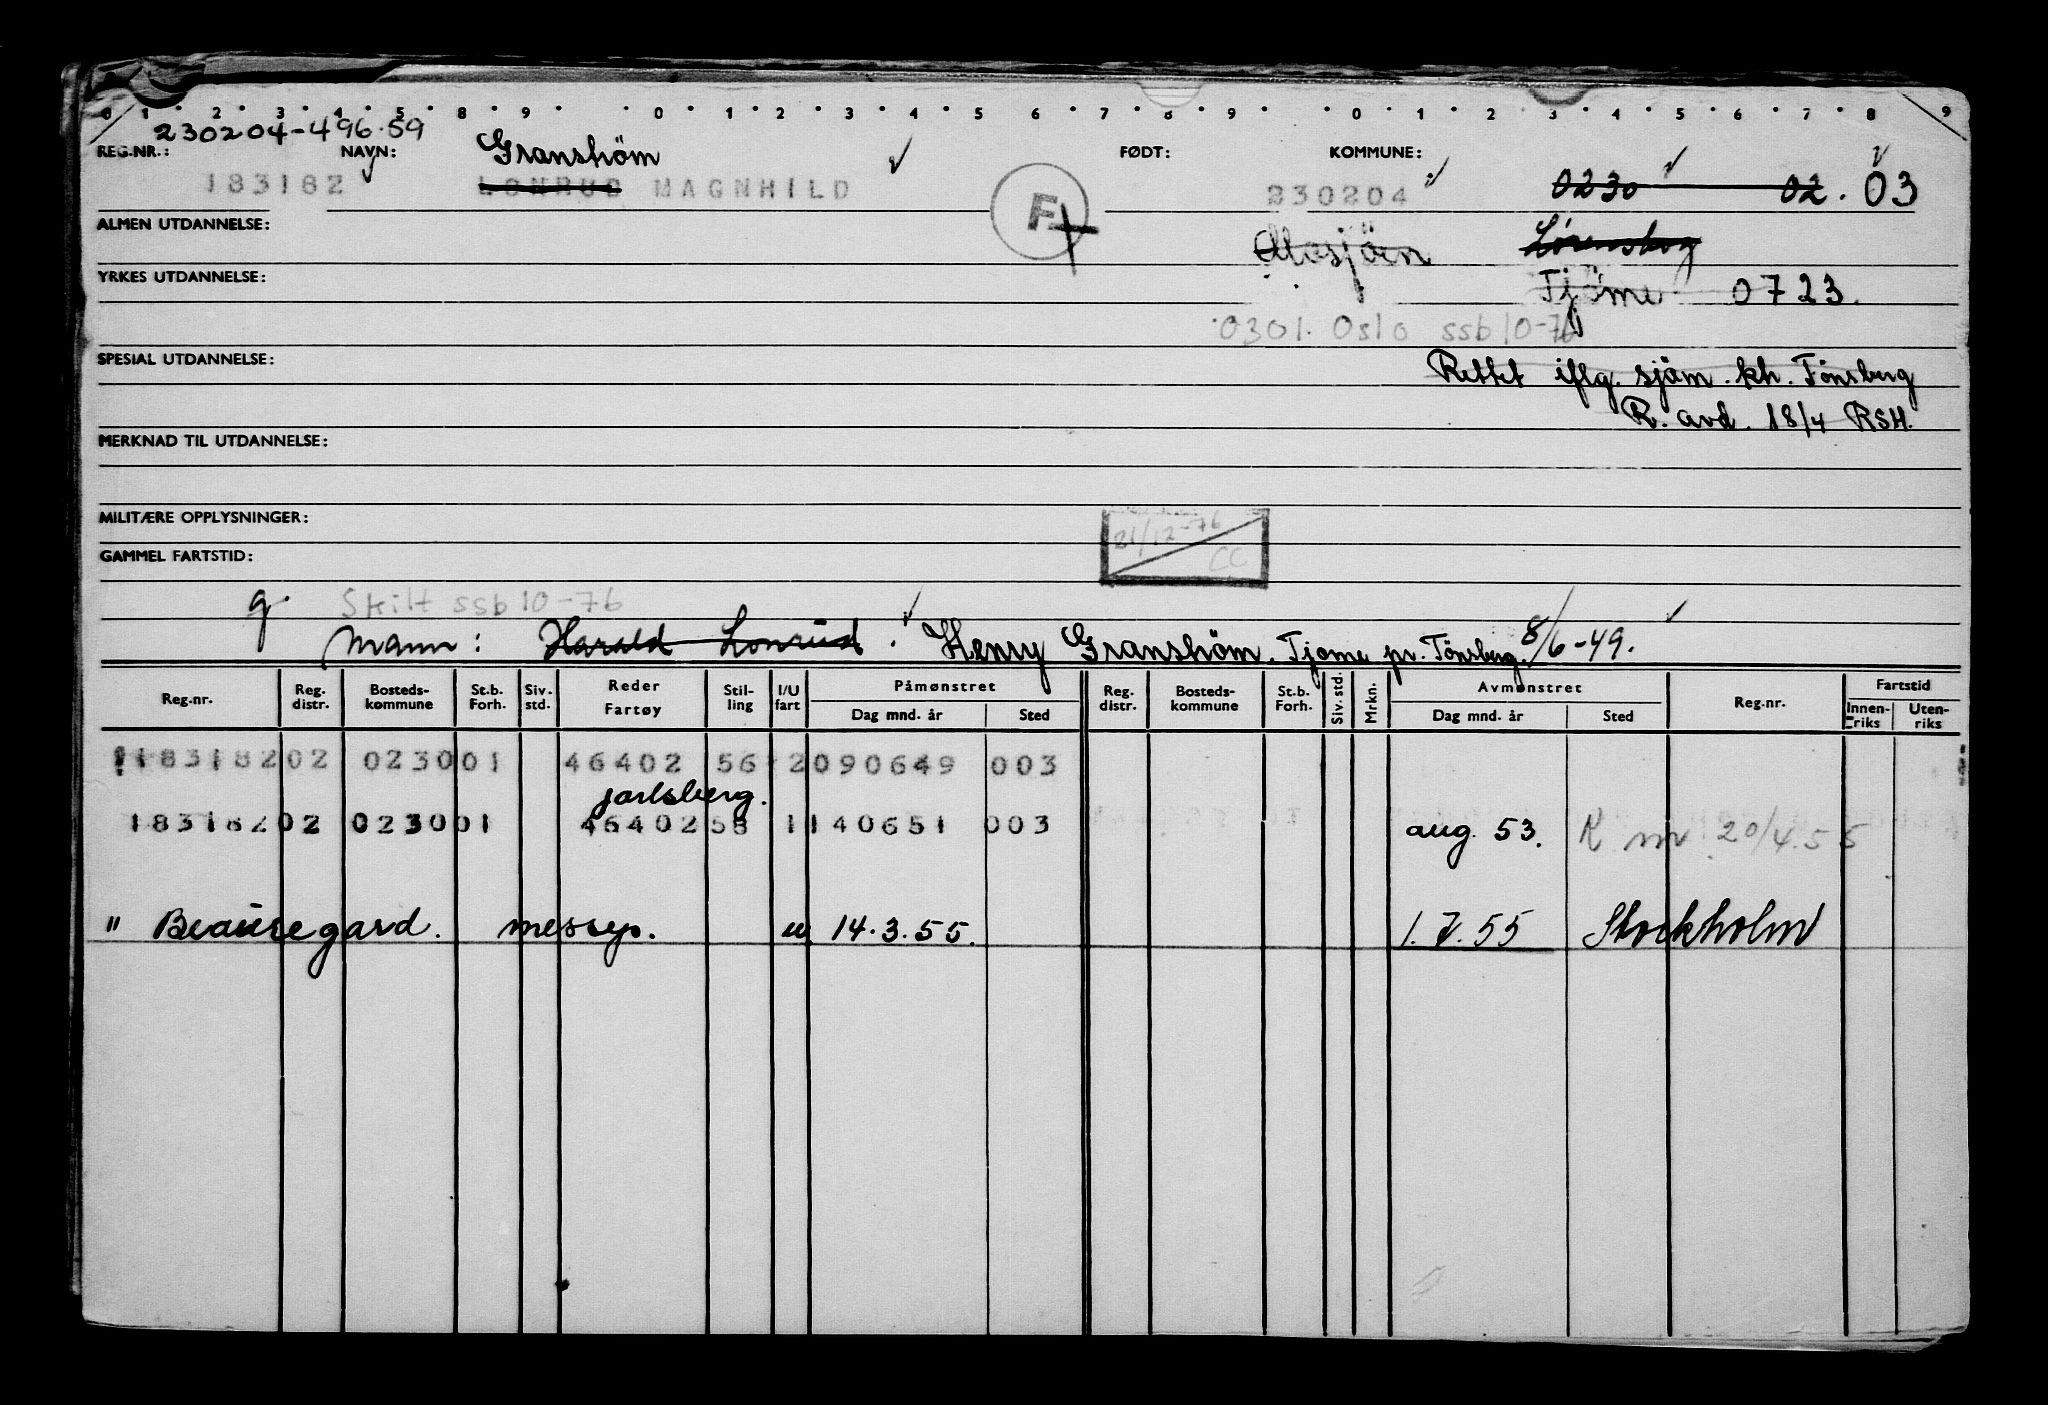 0 1 2 3 4 5 8 9 0 1 2 3 4 5 6 7 8 9 0 1 2 3 4 5 6 7 8 9
230204-496.59
REG.NR.: NAVN: Granshöm FØDT: KOMMUNE:
183182 LONRUD MAGNHILD F 230204 0230 02. 03
ALMEN UTDANNELSE: Mosjöen Lørenskog
YRKES UTDANNELSE: Tjöme 0723.
0301. Oslo ssb 10-76
SPESIAL UTDANNELSE: Rettet iflg. sjöm. kh. Tönsberg
R. avd. 18/4 RSH.
MERKNAD TIL UTDANNELSE:
MILITÆRE OPPLYSNINGER: 21/12-76
CC
GAMMEL FARTSTID:
g Skilt ssb 10-76
Mann: Harald Lonrud. Henry Granshöm. Tjöme pr. Tönsberg. 8/6-49.
Reg.nr. Reg. distr. Bosteds- kommune St.b. Forh. Siv. std. Reder Fartøy Stil- ling I/U fart Påmønstret Dag mnd. år Sted Reg. distr. Bosteds- kommune St.b. Forh. Siv. std. Mrkn. Avmønstret Dag mnd. år Sted Reg.nr. Fartstid Innen- riks Uten- riks
183182 02 0230 01 46402 56 2 090649 003
Jarlsberg.
183182 02 0230 01 46402 58 1 140651 003 aug. 53. R nr 20/4.55
" Beauregard. messep. u. 14.3.55. 1.7.55 Stockholm